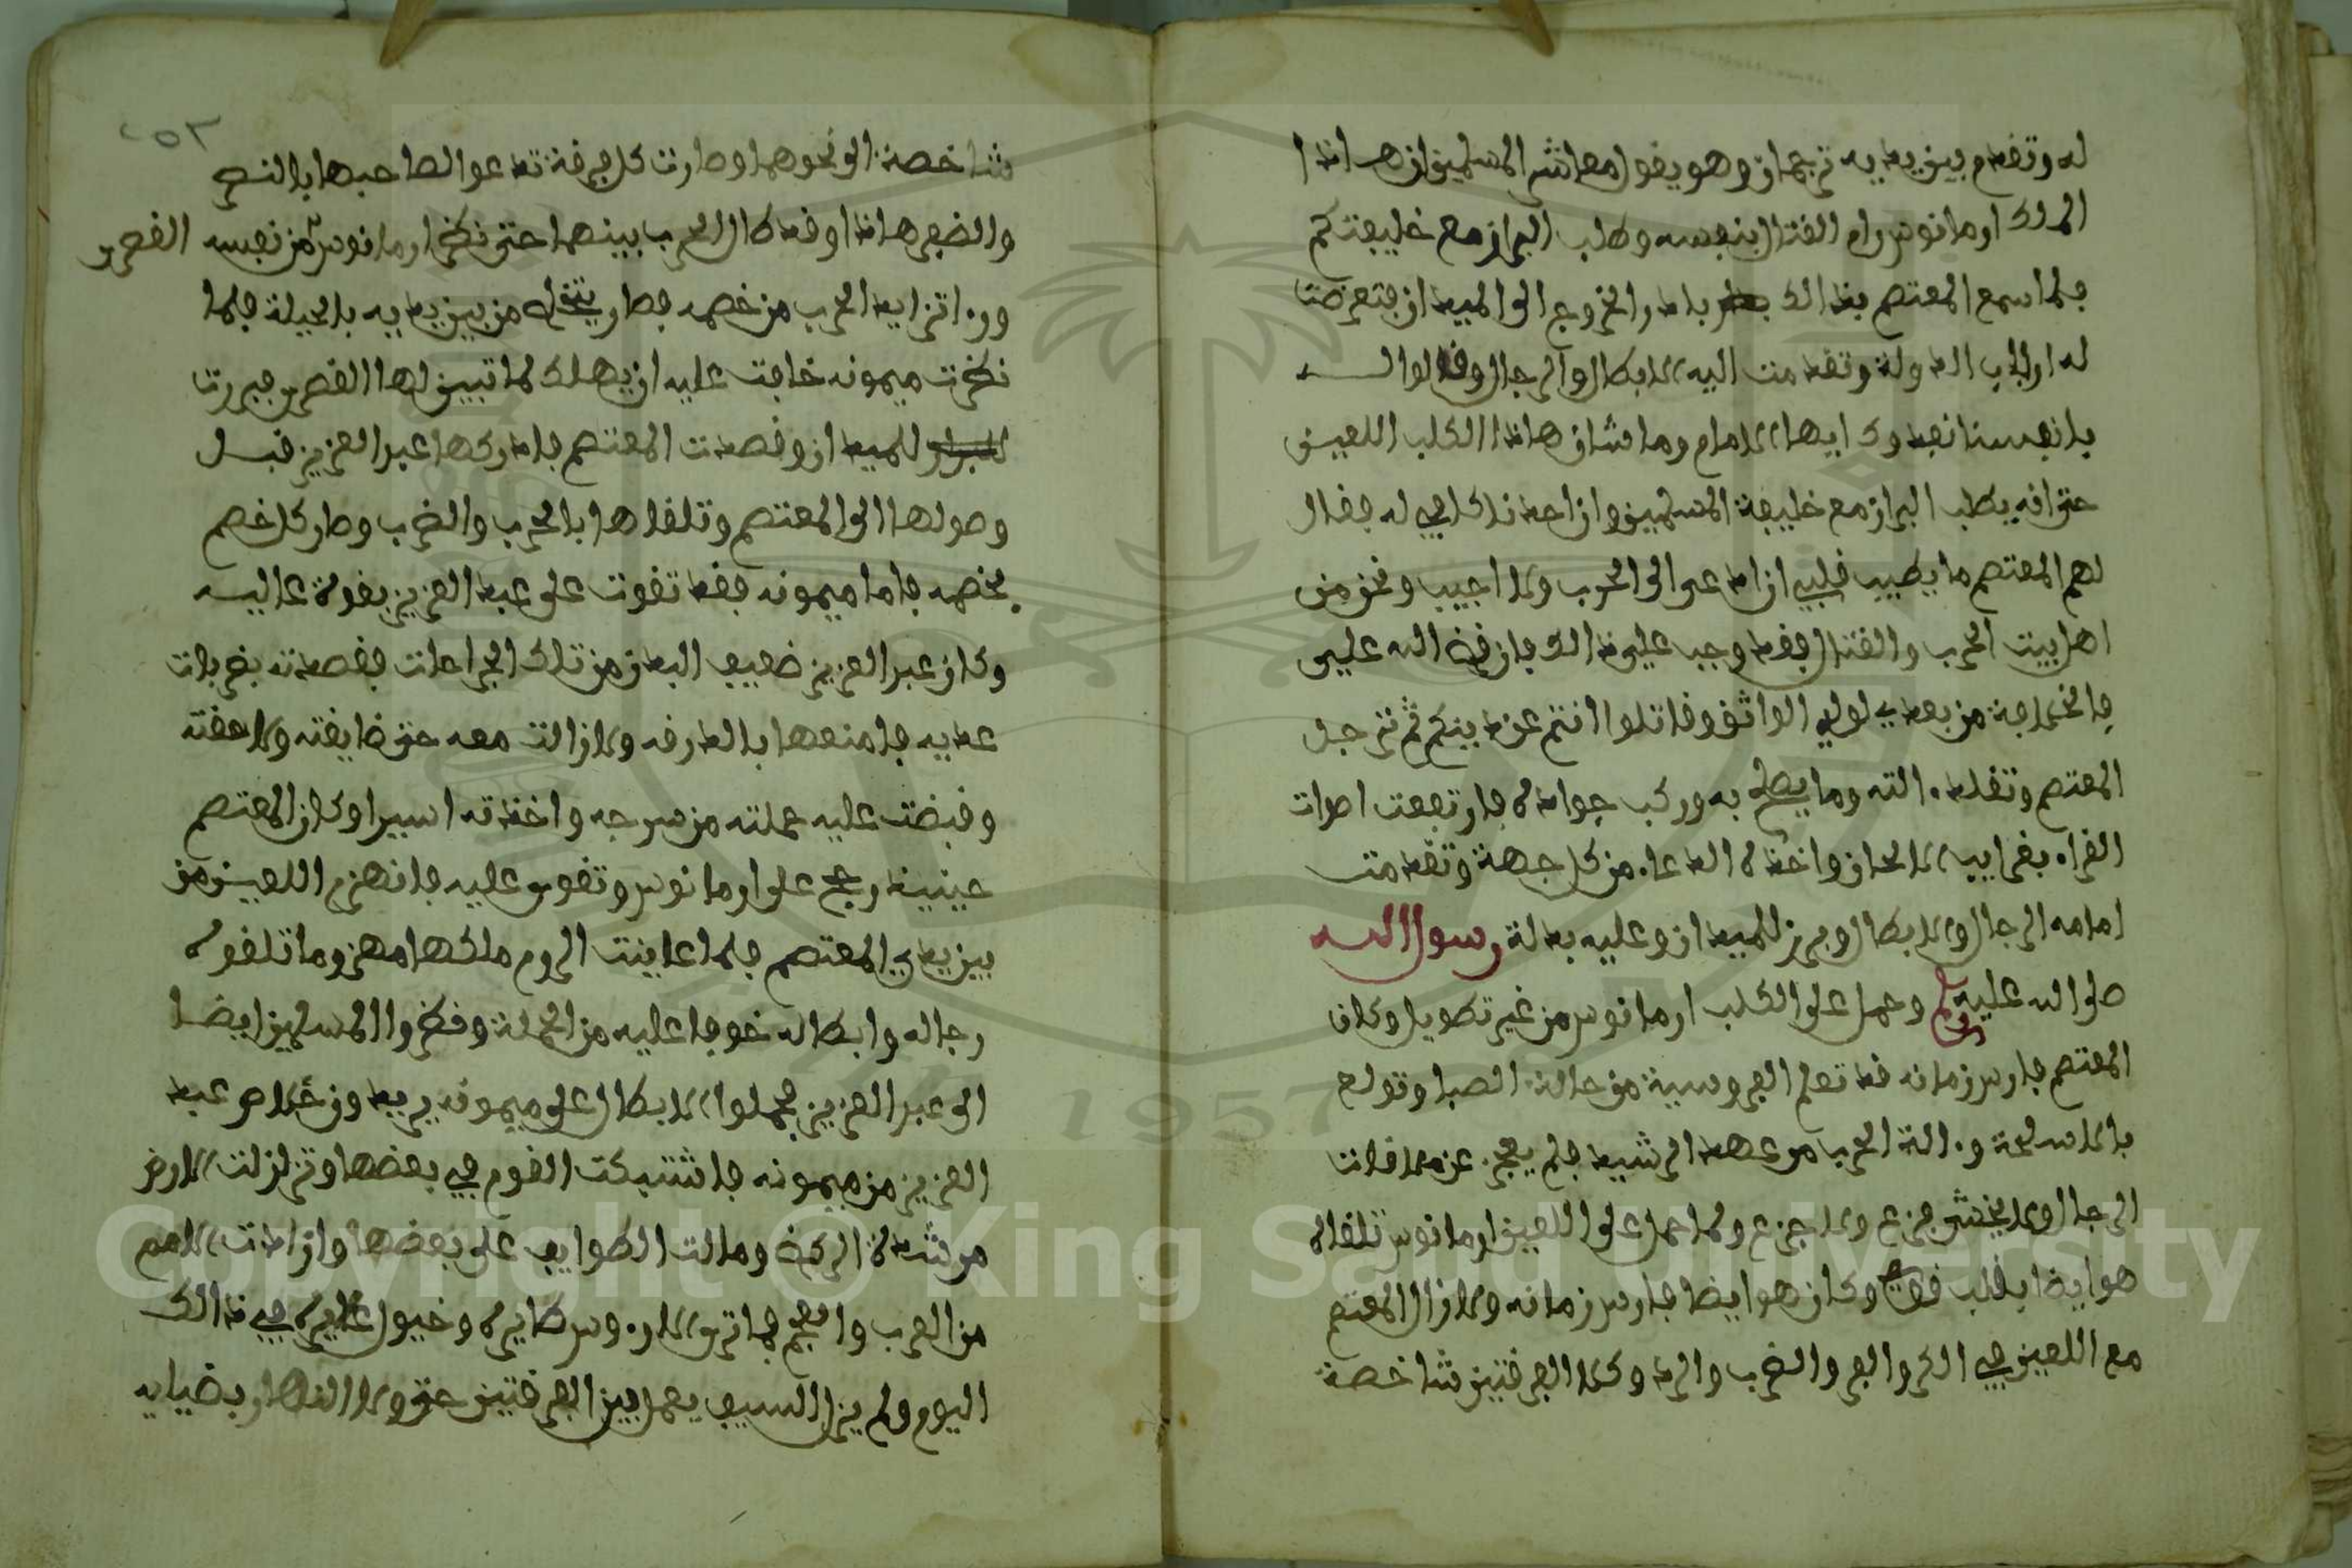 له وتقدم بين يديه ترجمان وهو يقول معاشر المسلمين ان هاذا
الملك ارمانوس رام القتال بنفسه وطلب البراز مع خليفتكم
فلما سمع المعتصم بذالك بادر الخروج الى الميدان فتعرضت
له ارباب الدولة وتقدمت اليه الابطال والرجال وقالوا له
بانفسنا نفدوك ايها الامام وما شان هاذا الكلب اللعين
حتى انه يطلب البراز مع خليفة المسلمين وان احدنا كافي له فقال
لهم المعتصم ما يطيب قلبي ان ادعى الى الحرب ولا اجيب ونحن من
اهل بيت الحرب والقتال فقد وجب علي ذالك فان قضى الله علي
فالخلافة من بعدي لولدي الواثق وقاتلوا انتم عن دينكم ثم ترجل
المعتصم وتفقد ءالته وما يصلح به وركب جواده فارتفعت اصوات
القراء بغرايب الالحان واخذه الدعاء من كل جهة وتقدمت
امامه الرجال والابطال وبرز للميدان وعليه بدلة رسول الله
صلى الله عليه وسلم وحمل على الكلب ارمانوس من غير تطويل وكان
المعتصم فارس زمانه قد تعلم الفروسية من حالة الصبا وتولع
بالاسلحة وءالة الحرب من عهد الرشيد فلم يعجز عن ملاقات
الرجال ولا يخش فزع ولا جزع ولما حمل على اللعين ارمانوس تلقاه
هو ايضا بقلب قوي وكان هو ايضا فارس زمانه ولا زال المعتصم
مع اللعين في الكر والفر والضرب والرد وكلا الفرقتين شاخصة
شاخصة الى نحوهما وصارت كل فرقة تدعو الصاحبها بالنصر
والظفر هاذا وقد طال الحرب بينهما حتى نظر ارمانوس من نفسه القصير
ورءا تزايد الحرب من خصمه فصار يتخلى من بين يديه بالحيلة فلما
نظرت ميمونه خافت عليه ان يهلك لما تبين لها القصير فبرزت
للميدان وقصدت المعتصم فادركها عبد العزيز قبل
وصولها الى المعتصم وتلقاها بالحرب والضرب وصار كل خصم
بخصمه فاما ميمونه فقد تقوت على عبد العزيز بقوة عاليه
وكان عبد العزيز ضعيف البدن من تلك الجراحات فقصدته بضربات
عديه فامنعها بالدرقه ولا زالت معه حتى ضايقته ولاصقته
وقبضت عليه حملته من سرجه واخذته اسيرا وكان المعتصم
حينيذ رجح على ارمانوس وتقوى عليه فانهزم اللعين من
بين يدي المعتصم فلما عاينت الروم ملكها مهزوما تلقوه
رجاله وابطاله خوفا عليه من الحملة ونظروا المسلمين ايضا
الى عبد العزيز فحملوا الابطال على ميمونه يريدون خلاص عبد
العزيز من ميمونه فاشتبكت القوم في بعضها وتزلزلت الارض
من شدة الركض ومالت الطوايف على بعضها وازدادت الامم
من العرب والعجم فما ترى الا رءوس طايره وخيول غايره في ذالك
اليوم ولم يزل السيف يعمل بين الفرقتين حتى ولا النهار بضيايه
Copyright © King Saud University
1957